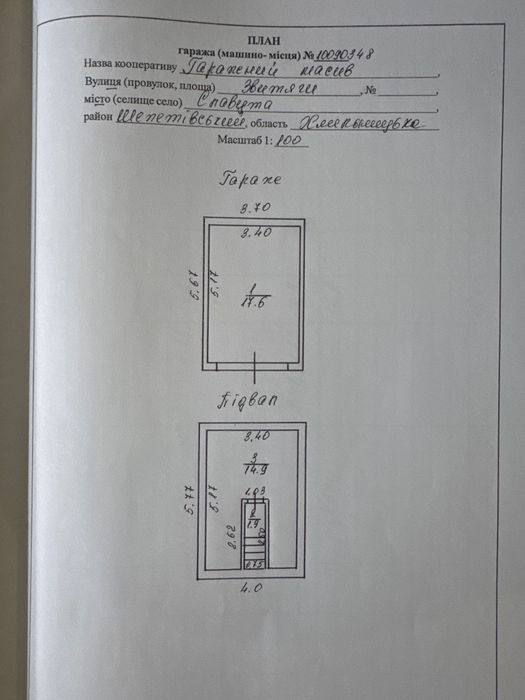 ПЛАН
гаража (машино- місця) № 10090348
Назва кооперативу Гаражений масив ,
Вулиця (провулок, площа) Звитяги , № ,
місто (селище село) Славута ,
район Шепетівський, область Хмельницька
Масштаб 1: 100
Гараж
3.70
3.40
5.67
5.17
1
17.6
Підвал
3.40
3
14.9
5.77
5.17
1.03
2
1.9
2.62
2.50
0.75
4.0